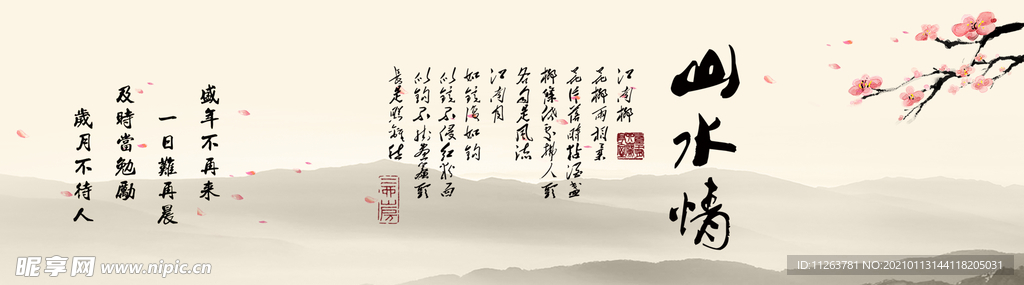 山水情
江南柳
花柳兩相柔
花片落時黏酒盞
柳條低處拂人頭
各自是風流
江南月
如鏡復如鉤
似鏡不侵紅粉面
似鉤不掛畫簾頭
長是照離愁
盛年不再来
一日難再晨
及時當勉勵
歲月不待人
昵享网 www.nipic.cn
ID:11263781 NO:20210113144118205031